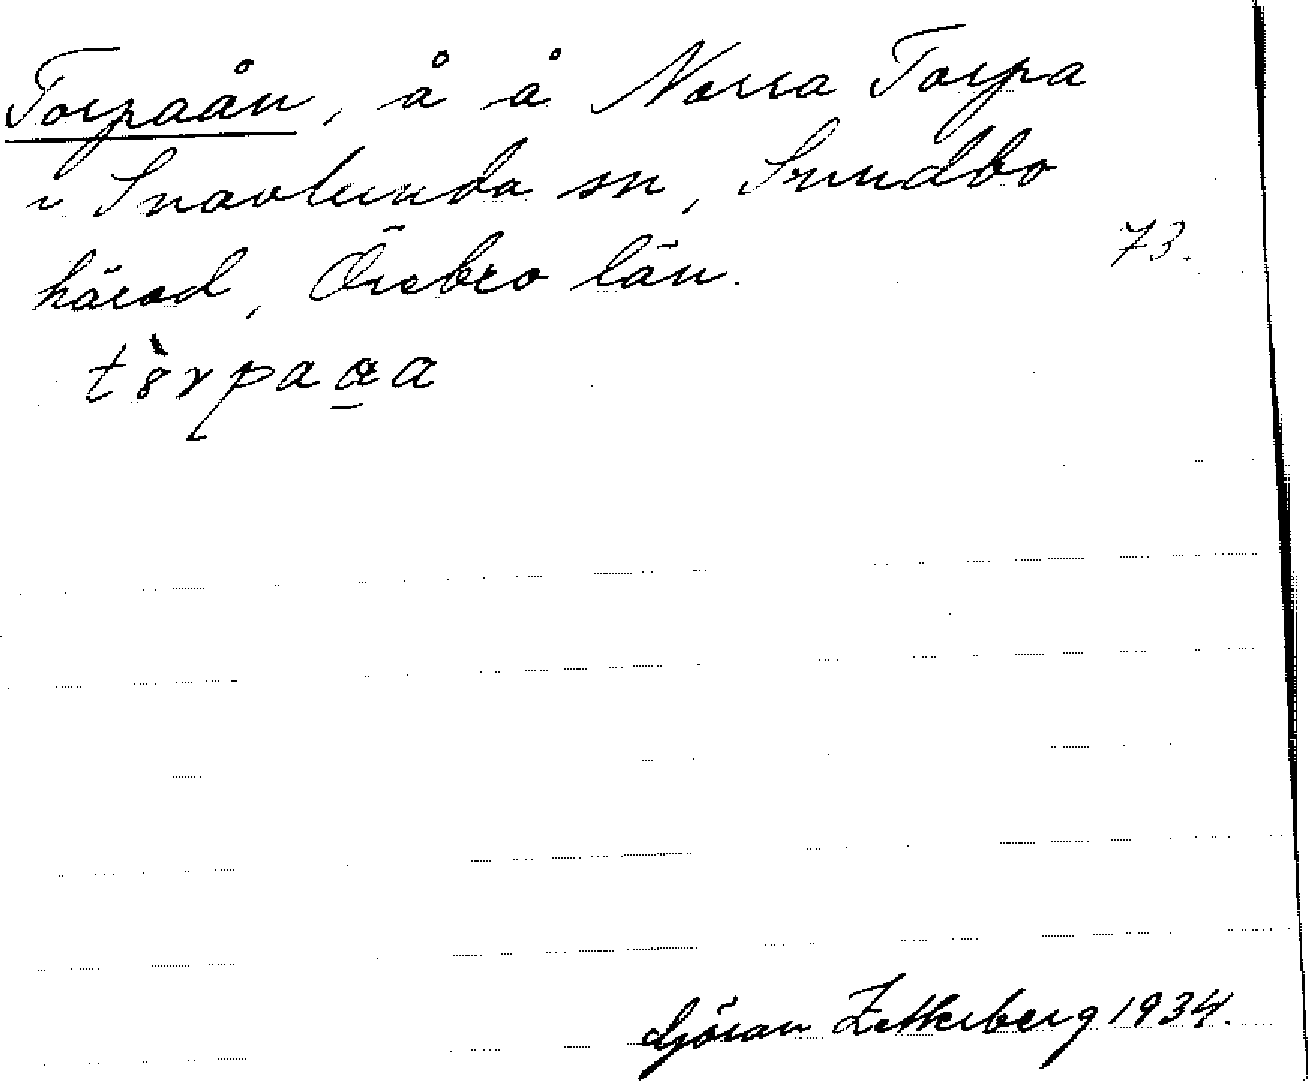 Torpaån, å å Norra Torpa
i Snavlunda sn, Sundbo
härad, Örebro län.
73.
Göran Zetterberg 1934.